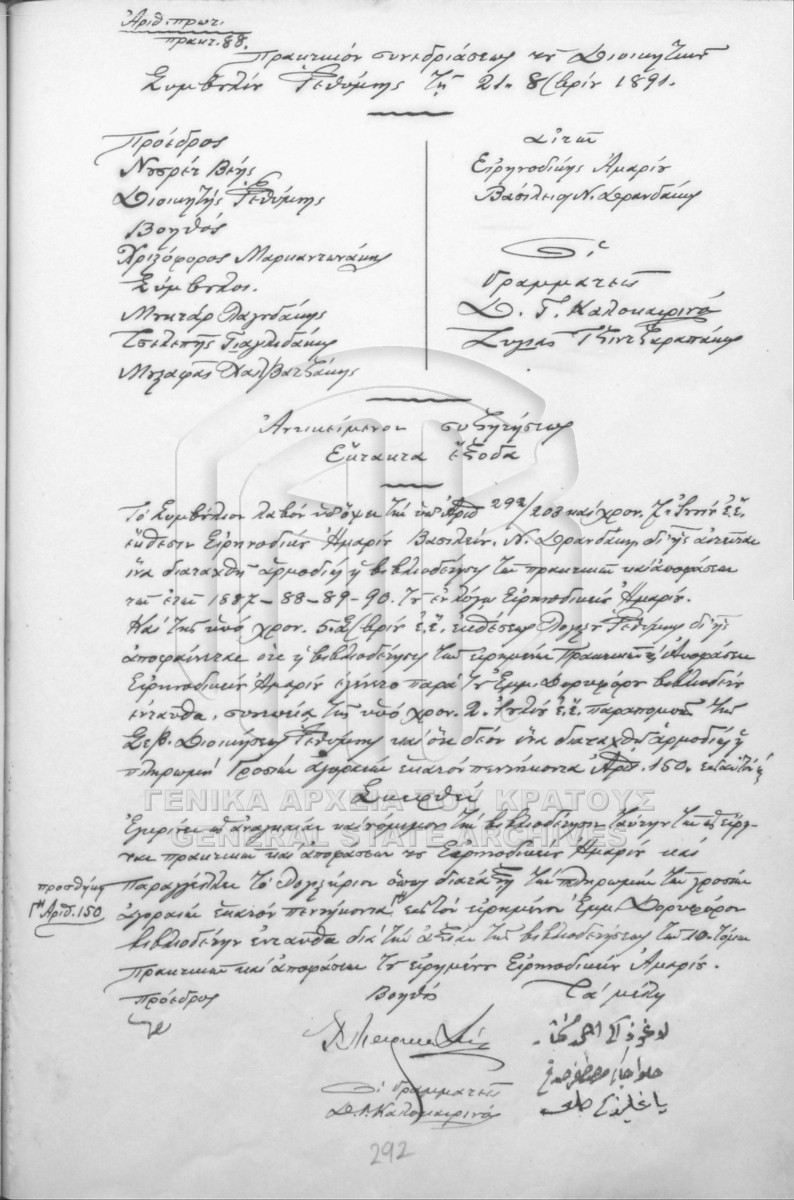 Ἀριθ. πρωτ.
πρακτ. 88.
Πρακτικὸν συνεδριάσεως τοῦ Διοικητικοῦ
Συμβουλίου Ῥεθύμνης τῆς 21 8βρίου 1891.
Πρόεδρος
Νουσρὲτ Βέης
Διοικητὴς Ῥεθύμνης
Βοηθὸς
Χριζόφορος Μαρκαντωνάκης
Σύμβουλοι.
Μουκτὰρ Λαγουδάκης
Τσελεπῆς Γιαγλιδάκης
Μουσταφᾶς Χαλβατζάκης
Αἰτῶν
Εἰρηνοδίκης Ἀμαρίου
Βασίλειος Ν. Δρανδάκης
Οἱ
Γραμματεῖς
Δ. Γ. Καλοκαιρινὸς
Ἀντικείμενον συζητήσεως
Ἔκτακτα ἔξοδα
Τὸ Συμβούλιον λαβὸν ὑπ' ὄψει τὴν ὑπ' Ἀριθ 292/208 καὶ χρον. 7 Ἰουνίου ἐ.ἔ.
ἔκθεσιν Εἰρηνοδίκου Ἀμαρίου Βασιλείου Ν. Δρανδάκη δι' ἧς αἰτεῖται
ἵνα διαταχθῇ ἁρμοδίως ἡ βιβλιοδέτησις τῶν πρακτικῶν καὶ ἀποφάσεων
τῶν ἐτῶν 1887–88–89–90. τοῦ ἐν λόγῳ Εἰρηνοδικείου Ἀμαρίου.
Καὶ τῆς ὑπὸ χρον. 5 βρίου ἐ.ἔ. ἐκθέσεως Ῥεθύμνης δι' ἧς
ἀποφαίνεται ὅτι ἡ βιβλιοδέτησις τῶν εἰρημένων Πρακτικῶν & Ἀποφάσεων
Εἰρηνοδικείου Ἀμαρίου ἐγένετο παρὰ τοῦ Ἐμμ. Δορυφόρου βιβλιοδέτου
ἐνταῦθα, συνεπείᾳ τῆς ὑπὸ χρον. 2 Ἰουλίου ἐ.ἔ. παραπομπῆς τῆς
Σεβ. Διοικήσεως Ῥεθύμνης καὶ ὅτι δέον ἵνα διαταχθῇ ἁρμοδίως ἡ
πληρωμὴ Γροσίων ἀγοραίων ἑκατὸν πεντήκοντα Ἀριθ. 150
Σκεφθὲν
Ἐγκρίνει ὡς ἀναγκαίαν καὶ νόμιμον τὴν βιβλιοδέτησιν ταύτην τῶν ὡς εἴρη-
νται πρακτικῶν καὶ ἀποφάσεων τοῦ Εἰρηνοδικείου Ἀμαρίου καὶ
Παραγγέλλει τὸ Λογιστήριον ὅπως διατάξῃ τὴν πληρωμὴν τῶν γροσίων
προσθήκη
Ἀριθ. 150
ἀγοραίων ἑκατὸν πεντήκοντα εἰς τὸν εἰρημένον Ἐμμ. Δορυφόρον
βιβλιοδέτην ἐνταῦθα διὰ τὴν ἀξίαν τῆς βιβλιοδετήσεως τῶν 10 τόμων
Πρακτικῶν καὶ ἀποφάσεων τοῦ εἰρημένου Εἰρηνοδικείου Ἀμαρίου.
Πρόεδρος
Βοηθὸς
Τὰ μέλη
Οἱ Γραμματεῖς
Δ. Γ. Καλοκαιρινὸς
292
ΓΕΝΙΚΑ ΑΡΧΕΙΑ ΤΟΥ ΚΡΑΤΟΥΣ
GENERAL STATE ARCHIVES